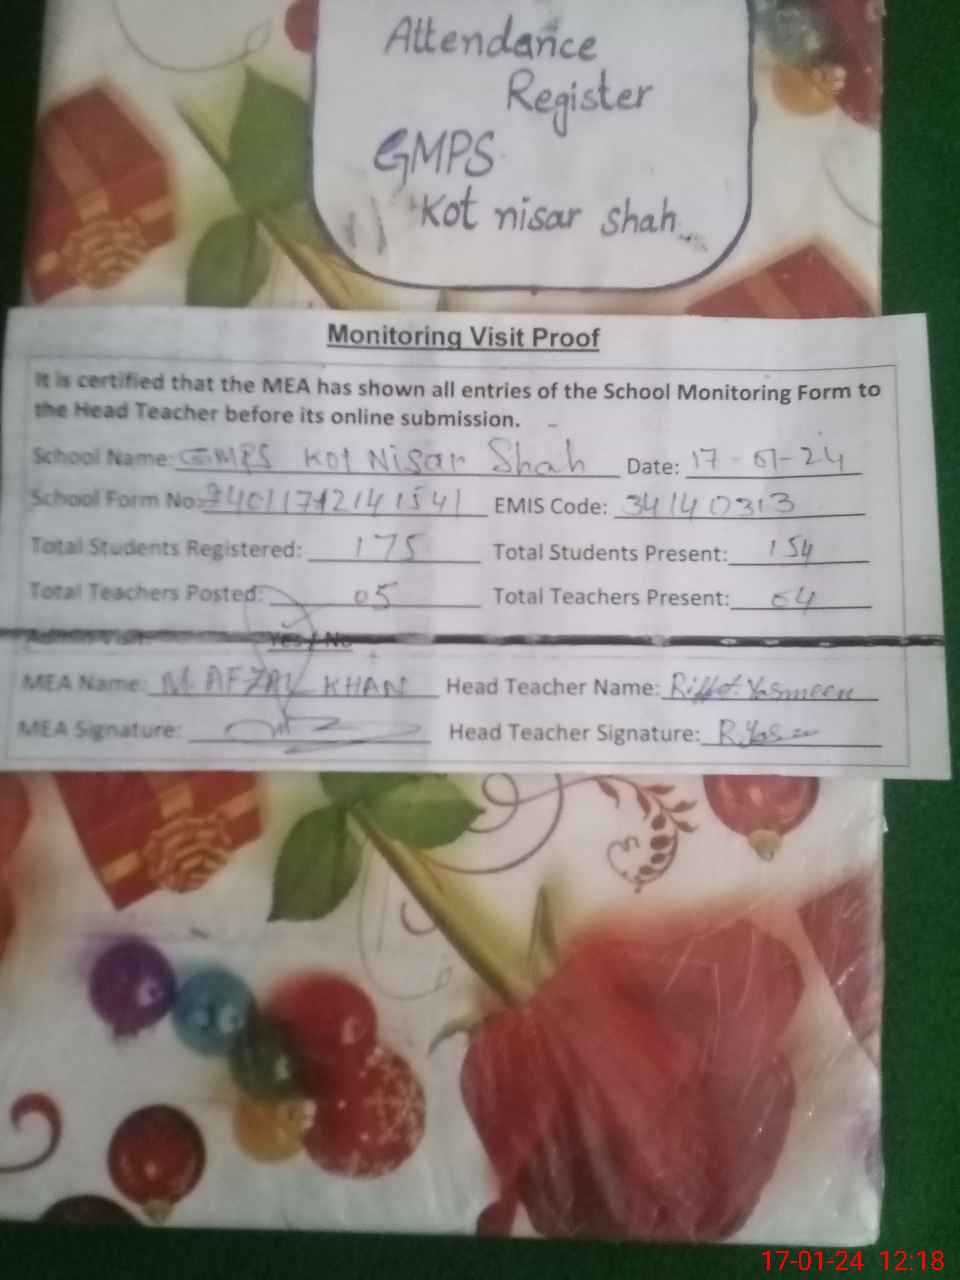 Attendance
Register
GMPS
Kot nisar shah
Monitoring Visit Proof
It is certified that the MEA has shown all entries of the School Monitoring Form to
the Head Teacher before its online submission.
School Name: GMPS Kot Nisar Shah Date: 17-01-24
School Form No: EMIS Code: 34140313
Total Students Registered: 175 Total Students Present: 154
Total Teachers Posted: 05 Total Teachers Present: 04
Admin Visit: Yes / No
MEA Name: M AFZAL KHAN Head Teacher Name: Riffat Yasmeen
MEA Signature: Head Teacher Signature: R.Yas
17-01-24 12:18